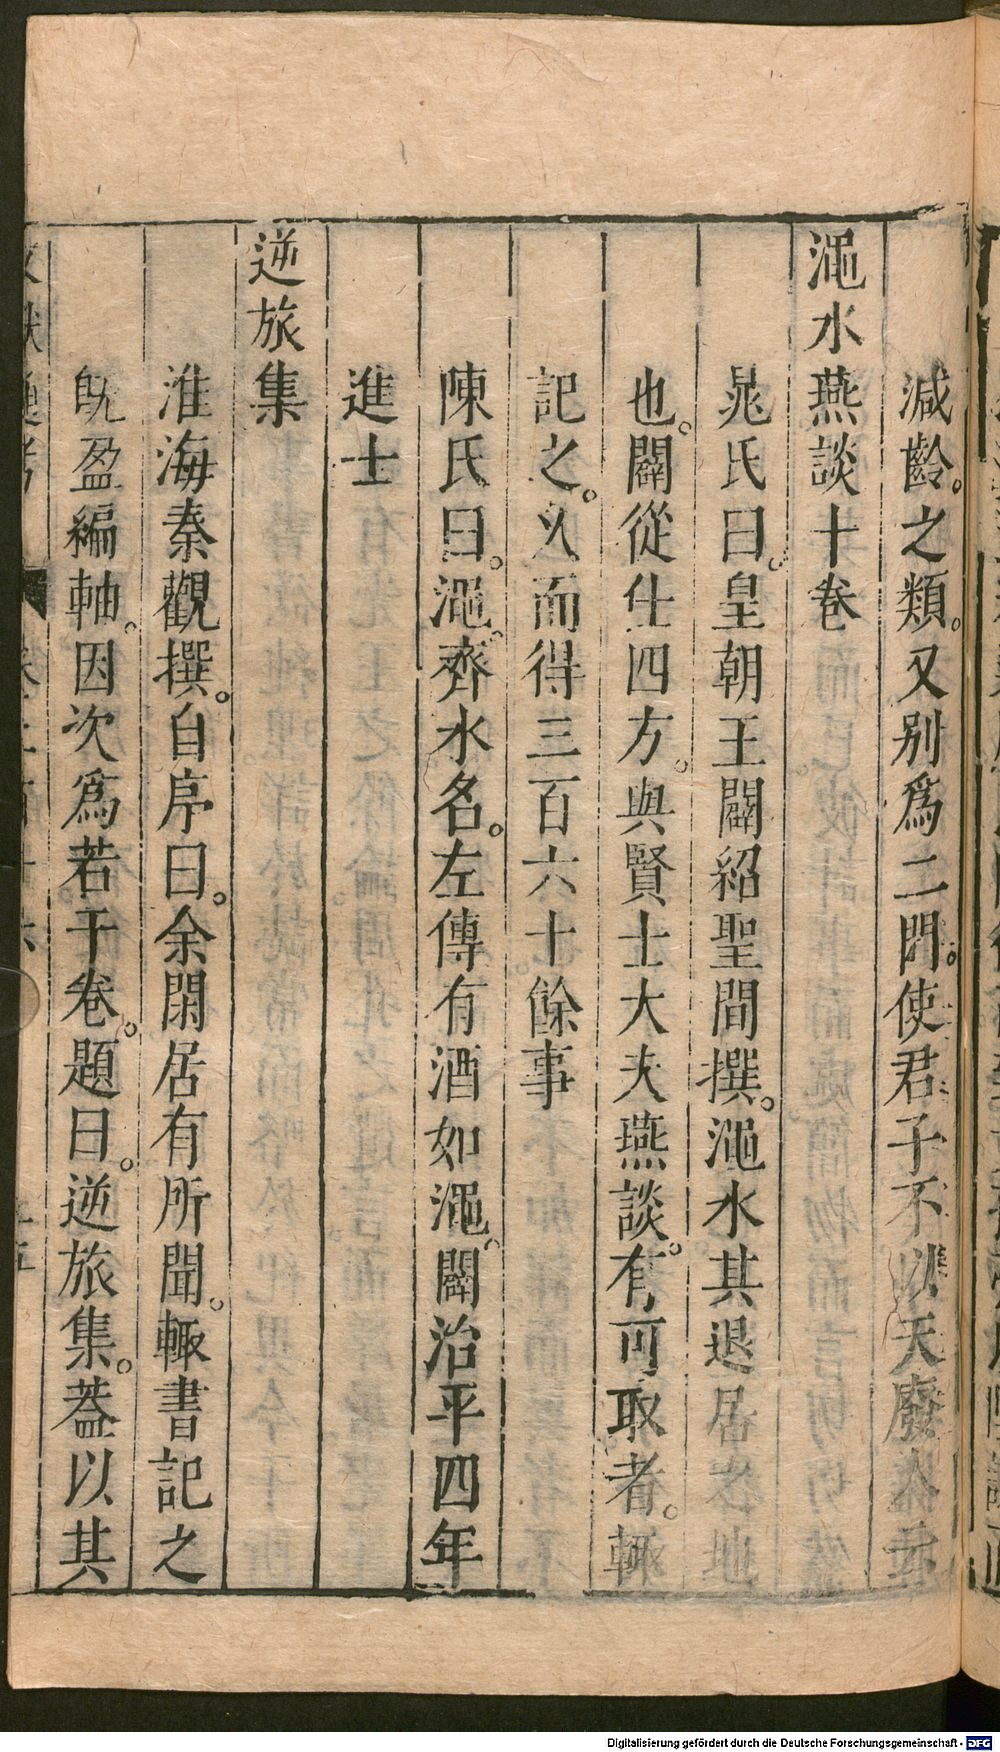 減齡。之類。又別爲二門。使君子不以天廢人
澠水燕談十卷
晁氏曰。皇朝王闢紹聖間撰。澠水其退居之地
也。闢從仕四方。與賢士大夫燕談。有可取者。輙
記之。乆而得三百六十餘事
陳氏曰。澠。齊水名。左傳有酒如澠。闢治平四年
進士
逆旅集
淮海秦觀撰。自序曰。余閑居有所聞。輙書記之
旣盈編軸。因次爲若干卷。題曰。逆旅集。葢以其
Digitalisierung gefördert durch die Deutsche Forschungsgemeinschaft - DFG